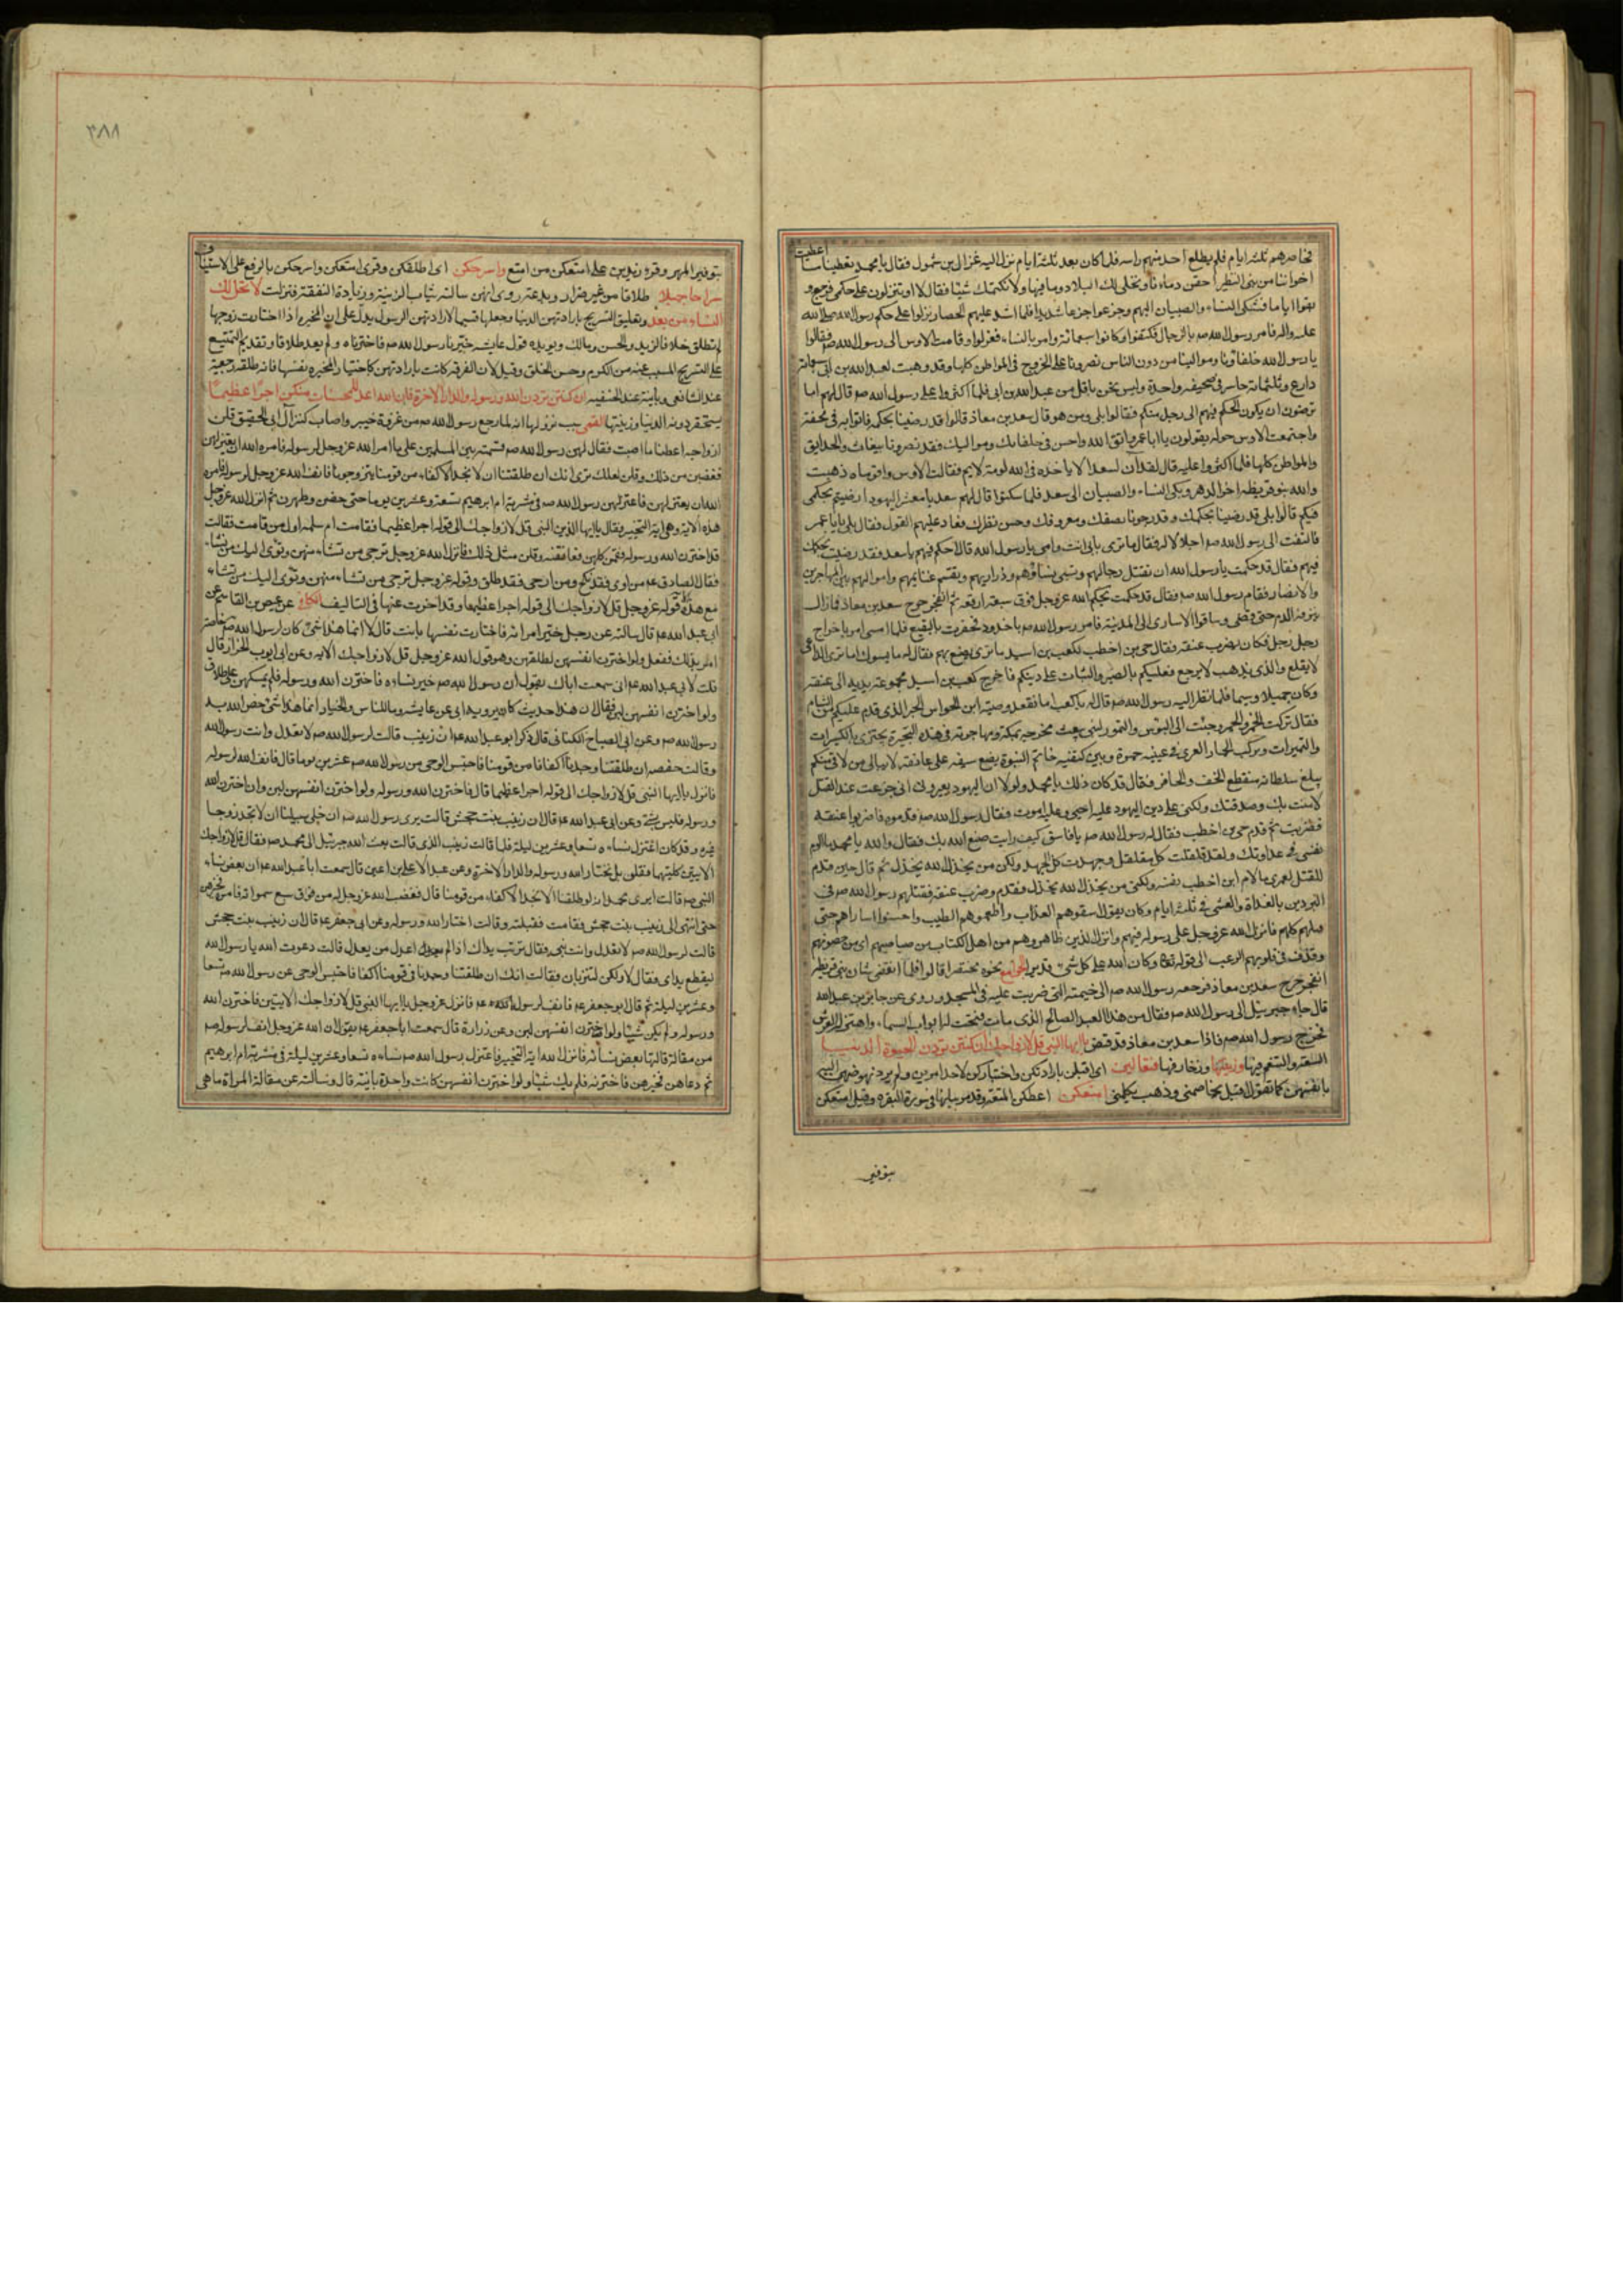 فحاصرهم ثلثة ايام فلم يطلع احد منهم راسه فلما كان بعد ثلثة ايام نزل اليه غزال بن شمول فقال يا محمد تعطينا ما اعطيت
اخواننا من بنى النضير احقن دماءنا ونخلى لك البلاد وما فيها ولا نكتمك شيئا فقال لا او تنزلون على حكمى فرجع و
بقوا اياما فبكى النساء والصبيان اليهم وجزعوا جزعا شديدا فلما اشتد عليهم الحصار نزلوا على حكم رسول الله صلى الله
عليه واله فامر رسول الله صم بالرجال فكتفوا وكانوا سبعمائة وامر بالنساء فعزلوا وقامت الاوس الى رسول الله صم فقالوا
يا رسول الله حلفاؤنا وموالينا من دون الناس نصرونا على الخزرج فى المواطن كلها وقد وهبت لعبد الله بن ابى سبعمائة
دارع وثلثمائة حاسر فى صحيفة واحدة وليس نحن باقل من عبد الله بن ابى فلما اكثروا على رسول الله صم قال لهم اما
ترضون ان يكون الحكم فيهم الى رجل منكم فقالوا بلى ومن هو قال سعد بن معاذ قالوا قد رضينا بحكمه فاتوا به فى محفة
واجتمعت الاوس حوله يقولون يا ابا عمرو اتق الله واحسن فى حلفائك ومواليك فقد نصرونا ببغاث والحدايق
والمواطن كلها فلما اكثروا عليه قال لقد آن لسعد الا ياخذه فى الله لومة لايم فقالت الاوس واقوماه ذهبت
والله بنو قريظه اخر الدهر وبكى النساء والصبيان الى سعد فلما سكتوا قال لهم سعد يا معشر اليهود ارضيتم بحكمى
فيكم قالوا بلى قد رضينا بحكمك وقد رجونا نصفك ومعروفك وحسن نظرك فعاد عليهم القول فقال بلى يا با عمر
فالتفت الى رسول الله صم اجلالا له فقال ما ترى بابى انت وامى يا رسول الله قال احكم فيهم يا سعد فقد رضيت بحكمك
فيهم فقال قد حكمت يا رسول الله ان تقتل رجالهم وتسبى نساؤهم وذراريهم وتقسم غنايمهم واموالهم بين المهاجرين
والانصار فقام رسول الله صم فقال قد حكمت بحكم الله عز وجل فوق سبعة ارقعة ثم انفجر جرح سعد بن معاذ فما زال
ينزفه الدم حتى قضى وساقوا الاسارى الى المدينة فامر رسول الله صم باخدود فحفرت بالبقيع فلما امسى امر باخراج
رجل رجل فكان يضرب عنقه فقال حى بن اخطب لكعب بن اسيد ما ترى يصنع بهم فقال له ما يسوك اما ترى الداعى
لا يقلع والذى يذهب لا يرجع فعليكم بالصبر والثبات على دينكم فاخرج كعب بن اسيد مجموعة يديه الى عنقه
وكان جميلا وسيما فلما نظر اليه رسول الله صم قال له يا كعب اما نفعك وصية ابن الحواس الحبر الذى قدم عليكم من الشام
فقال تركت الخمر والخمير وجئت الى البؤس والتمور لنبى يبعث مخرجه بمكة ومهاجرته فى هذه البحيرة يجتزى بالكسيرات
والتميرات ويركب الحمار العرى فى عينيه حمرة وبين كتفيه خاتم النبوة يضع سيفه على عاتقه لا يبالى من لاقى منكم
يبلغ سلطانه منقطع الخف والحافر فقال قد كان ذلك يا محمد ولولا ان اليهود يعيرونى انى جزعت عند القتل
لامنت بك وصدقتك ولكنى على دين اليهود عليه احيى وعليه اموت فقال رسول الله صم قدموه فاضربوا عنقه
فضربت ثم قدم حى بن اخطب فقال له رسول الله صم يا فاسق كيف رايت صنع الله بك فقال والله يا محمد ما الوم
نفسى فى عداوتك ولقد قلقلت كل مقلقل وجهدت كل الجهد ولكن من يخذل الله يخذل ثم قال حين قدم
للقتل لعمرى ما لام ابن اخطب نفسه ولكنه من يخذل الله يخذل فقدم وضرب عنقه فقتلهم رسول الله صم فى
البردين بالغداة والعشى فى ثلثة ايام وكان يقول اسقوهم العذاب واطعموهم الطيب واحسنوا اساراهم حتى
قتلهم كلهم فانزل الله عز وجل على رسوله فيهم وانزل الذين ظاهروهم من اهل الكتاب من صياصيهم اى من حصونهم
وقذف فى قلوبهم الرعب الى قوله تعالى وكان الله على كل شئ قديرا الجوامع نحوه مختصرا قالوا فلما انقضى شان بنى قريظه
انفجر جرح سعد بن معاذ فرجعه رسول الله صم الى خيمته التى ضربت عليه فى المسجد وروى عن جابر بن عبد الله
قال جاء جبرئيل الى رسول الله صم فقال من هذا العبد الصالح الذى مات فتحت له ابواب السماء واهتز له العرش
فخرج رسول الله صم فاذا سعد بن معاذ قد قبض يا ايها النبى قل لازواجك ان كنتن تردن الحيوة الدنيـــا
السعة والتنعم فيها وزينتها وزخارفها فتعالين اى اقبلن بارادتكن واختياركن لاحد امرين ولم يرد نهوضهن اليه
بانفسهن كما تقول اقبل يخاصمنى وذهب يكلمنى امتعكن اعطكن المتعة وقد مر بيانها فى سورة البقره وقيل امتعكن
بتوفير
٣٨٨
بتوفير المهر وقرء زيد بن على امتعكن من امتع واسرحكن اى اطلقكن وقرئ امتعكن واسرحكن بالرفع على الاستيناف
سراحا جميلا طلاقا من غير ضرار وبدعة روى انهن سالنه ثياب الزينة وزيادة النفقة فنزلت لا تحل لك
النساء من بعد وتعليق التسريح بارادتهن الدنيا وجعلها قسيما لارادتهن الرسول يدل على ان المخيره اذا اختارت زوجها
لم تطلق خلافا لزيد والحسن ومالك ويويده قول عايشه خيرنا رسول الله صم فاخترناه ولم يعد طلاقا وتقديم التمتيع
على التسريح المسبب عنه من الكرم وحسن الخلق وقيل لان الفرقه كانت بارادتهن كاختيار المخيره نفسها فانه طلقه رجعية
عند الشافعى وباينة عند الحنفيه ان كنتن تردن الله ورسوله والدار الاخرة فان الله اعد للمحسنات منكن اجرا عظيمـا
يستحقر دونه الدنيا وزينتها القمى سبب نزولها انه لما رجع رسول الله صم من غزوة خيبر واصاب كنز آل ابى الحقيق قلن
ازواجه اعطنا ما اصبت فقال لهن رسول الله صم قسمته بين المسلمين على ما امر الله عز وجل لرسوله فامره الله ان يعتزلهن
فغضبن من ذلك وقلن لعلك ترى انك ان طلقتنا ان لا نجد الاكفاء من قومنا يتزوجونا فانف الله عز وجل لرسوله فامره
الله ان يعتزلهن فاعتزلهن رسول الله صم فى مشربة ام ابرهيم تسعة وعشرين يوما حتى حضن وطهرن ثم انزل الله عز وجل
هذه الاية وهى اية التخيير فقال يا ايها النبى قل لازواجك الى قوله اجرا عظيما فقامت ام سلمه اول من قامت فقالت
قد اخترت الله ورسوله فقمن كلهن فعانقنه وقلن مثل ذلك فانزل الله عز وجل ترجى من تشاء منهن وتؤى اليك من تشاء
فقال الصادق عم من اوى فقد نكح ومن ارجى فقد طلق وقوله عز وجل ترجى من تشاء منهن وتؤى اليك من تشاء
مع هذه قوله عز وجل قل لازواجك الى قوله اجرا عظيما وقد اخرت عنها فى التاليف الكافى عن عيص بن القاسم عن
ابى عبد الله عم قال سالته عن رجل خير امراته فاختارت نفسها بانت قال لا انما هذا شئ كان لرسول الله صم خاصة
امر بذلك ففعل ولو اخترن انفسهن لطلقهن وهو قول الله عز وجل قل لازواجك الايه وعن ابى ايوب الخزاز قال
قلت لابى عبد الله عم انى سمعت اباك يقول ان رسول الله صم خير نساءه فاخترن الله ورسوله فلم يمسكهن على طلاق
ولو اخترن انفسهن لبن فقال ان هذا حديث كان يرويه ابى عن عايشه وما للناس والخيار انما هذا شئ خص الله به
رسول الله صم وعن ابى الصباح الكنانى قال ذكر ابو عبد الله عم ان زينب قالت لرسول الله صم لا تعدل وانت رسول الله
وقالت حفصه ان طلقتنا وجدنا اكفانا من قومنا فاحتبس الوحى من رسول الله صم عشرين يوما قال فانف الله لرسوله
فانزل يا ايها النبى قل لازواجك الى قوله اجرا عظيما قال فاخترن الله ورسوله ولو اخترن انفسهن لبن وان اخترن الله
ورسوله فليس بشئ وعن ابى عبد الله عم قال ان زينب بنت جحش قالت يرى رسول الله صم ان خلى سبيلنا ان لا نجد زوجا
غيره وقد كان اعتزل نساءه تسعا وعشرين ليلة فلما قالت زينب الذى قالت بعث الله جبرئيل الى محمد صم فقال قل لازواجك
الايتين كلتيهما فقلن بل نختار الله ورسوله والدار الاخرة وعن عبد الاعلى بن اعين قال سمعت ابا عبد الله عم ان بعض نساء
النبى صم قالت ايرى محمد انه لو طلقنا الا نجد الاكفاء من قومنا قال فغضب الله عز وجل له من فوق سبع سمواته فامره فخيرهن
حتى انتهى الى زينب بنت جحش فقامت فقبلته وقالت اختار الله ورسوله وعن ابى جعفر عم قال ان زينب بنت جحش
قالت لرسول الله صم لا تعدل وانت نبى فقال تربت يداك اذا لم اعدل من يعدل قالت دعوت الله يا رسول الله
ليقطع يداى فقال لا ولكن لتتربان فقالت انك ان طلقتنا وجدنا فى قومنا اكفاءنا فاحتبس الوحى عن رسول الله صم تسعا
وعشرين ليلة ثم قال ابو جعفر عم فانف لرسوله فانزل عز وجل يا ايها النبى قل لازواجك الايتين فاخترن الله
ورسوله ولم يكن شيئا ولو اخترن انفسهن لبن وعن زرارة قال سمعت ابا جعفر عم يقول ان الله عز وجل انف لرسوله صم
من مقالة قالتها بعض نسائه فانزل الله اية التخيير فاعتزل رسول الله صم نساءه تسعا وعشرين ليلة فى مشربة ام ابرهيم
ثم دعاهن فخيرهن فاخترنه فلم يك شيئا ولو اخترن انفسهن كانت واحدة باينة قال وسالته عن مقالة المراة ما هى